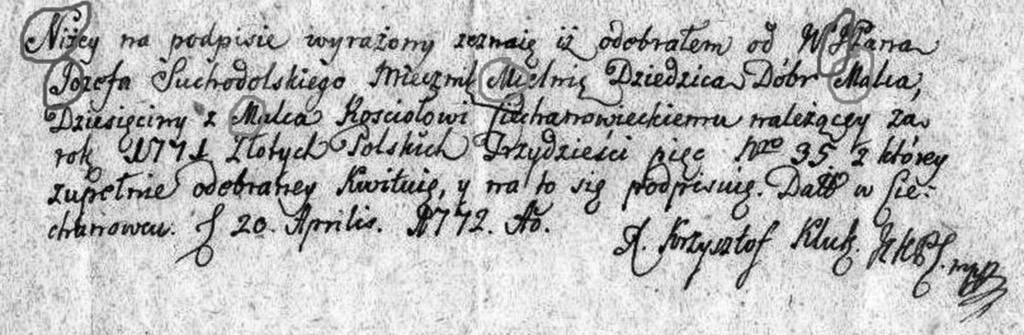 Niżey na podpisie wyrażony zeznaię iż odebrałem od W JPana
Jozefa Suchodolskiego Miecznik Mielnic Dziedzica Dóbr Malca,
Dziesięciny z Malca Kosciołowi Ciechanowieckiemu należącey za
rok 1771 Złotych Polskich Trzydzieści pięc Nro 35 z którey
zupełnie odebraney Kwituię, y na to się podpisuię. Datt w Cie-
chanowcu. 20. Aprilis. 1772. Ao.
X. Krzysztof Kluk.